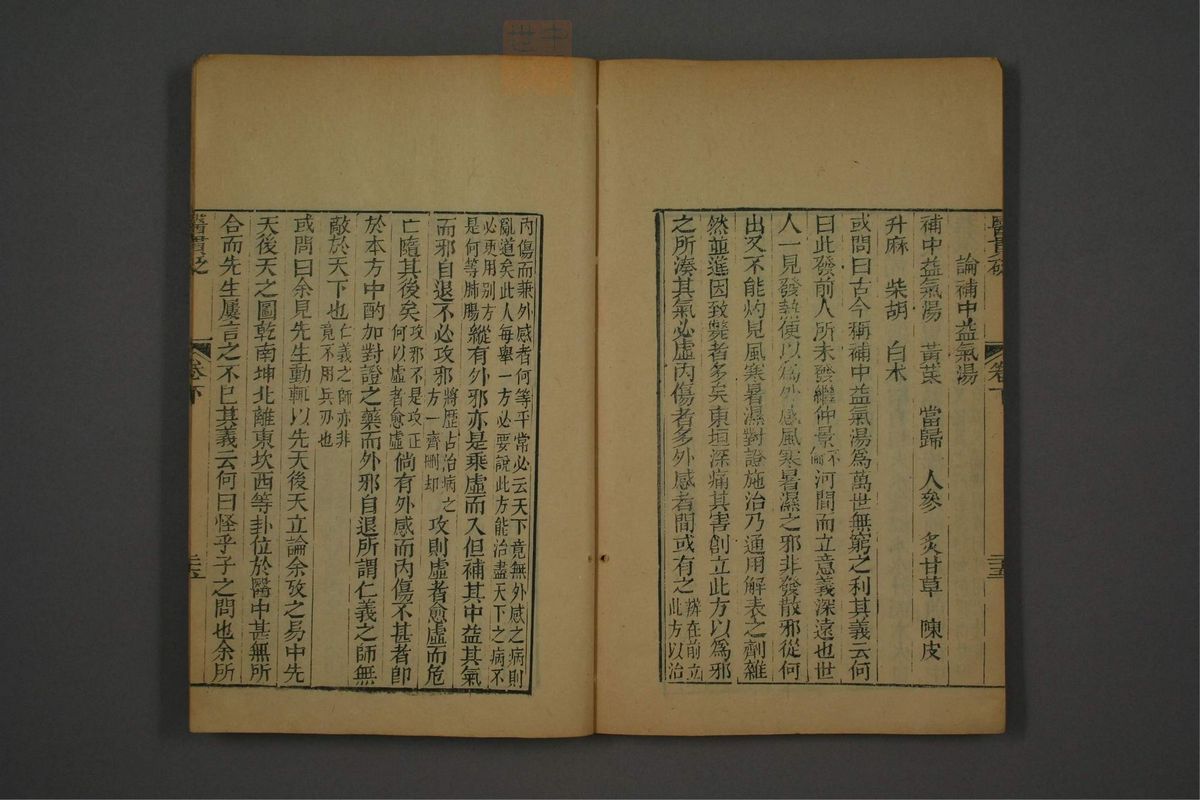 醫貫砭 卷下 二十五
論補中益氣湯
補中益氣湯 黃芪 當歸 人參 炙甘草 陳皮
升麻 柴胡 白朮
或問曰古今稱補中益氣湯爲萬世無窮之利其義云何
曰此發前人所未發繼仲景河間而立意義深遠也世
人一見發熱便以爲外感風寒暑濕之邪非發散邪從何
出又不能灼見風寒暑濕對證施治乃通用解表之劑雜
然並進因致斃者多矣東垣深痛其害創立此方以爲邪
之所湊其氣必虛內傷者多外感者間或有之
辨在前立
此方以治
內傷而兼外感者何等平常必云天下竟無外感之病則
亂道矣此人每舉一方必要說此方能治盡天下之病不
必更用別方
是何等肺腸
縱有外邪亦是乘虛而入但補其中益其氣
而邪自退不必攻邪
將歷古治病之
方一齊刪却
攻則虛者愈虛而危
亡隨其後矣
攻邪不是攻正
何以虛者愈虛
倘有外感而內傷不甚者卽
於本方中酌加對證之藥而外邪自退所謂仁義之師無
敵於天下也
仁義之師亦非
竟不用兵刃也
或問曰余見先生動輒以先天後天立論余攷之易中先
天後天之圖乾南坤北離東坎西等卦位於醫中甚無所
合而先生屢言之不已其義云何曰怪乎子之問也余所
醫貫砭 卷下 二十六